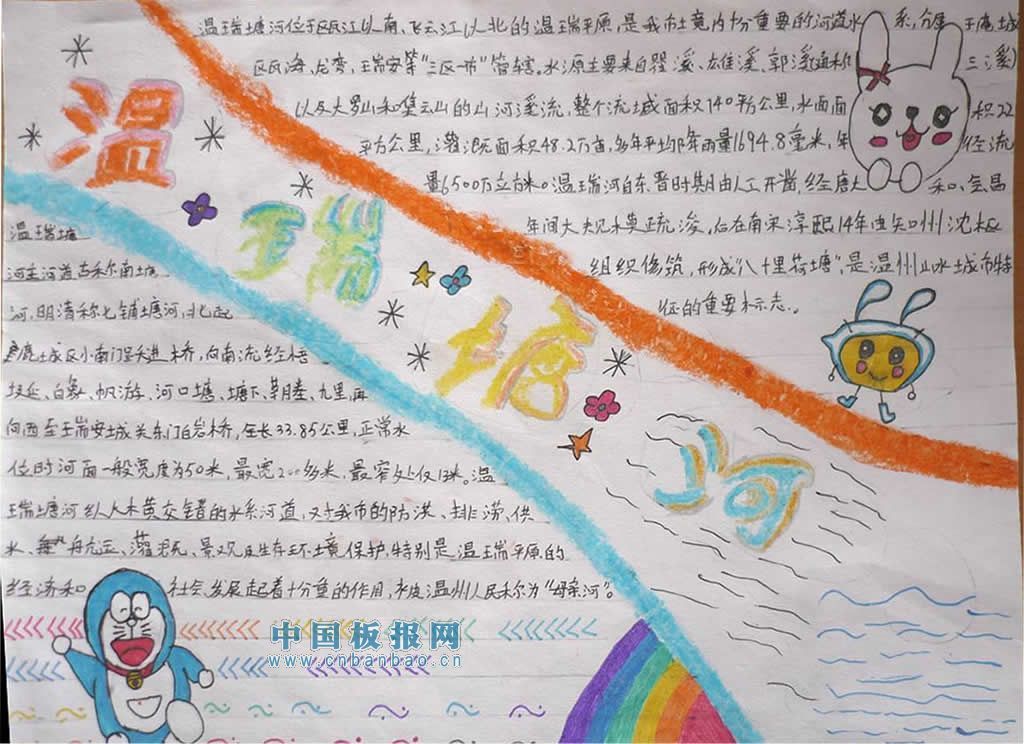 温瑞塘河
温瑞塘河位于瓯江以南、飞云江以北的温瑞平原,是我市境内十分重要的河道水系,分属于鹿城
区瓯海、龙湾、瑞安等"三区一市"管辖。水源主要来自瞿溪、雄溪、郭溪通称三溪)
以及大罗山和集云山的山河溪流,整个流域面积740平方公里,水面面积22
平方公里,灌溉面积48.2万亩,多年平均降雨量1694.8毫米,年径流
量6500万立方米。温瑞河自东晋时期由人工开凿,经唐大和、会昌
年间大规模疏浚,后在南宋淳熙14年由知州沈枢
组织修筑,形成"八十里荷塘",是温州山水城市特
征的重要标志。
温瑞塘
河主河道古称南塘
河,明清称七铺塘河,北起
鹿城区小南门跃进桥,向南流经梧
埏、白象、帆游、河口塘、塘下、莘塍、九里再
向西至瑞安城关东门白岩桥,全长33.85公里,正常水
位时河面一般宽度为50米,最宽200多米,最窄处仅13米。温
瑞塘河纵横交错的水系河道,对我市的防洪、排涝、供
水、航运、灌溉、景观及生存环境保护,特别是温瑞平原的
经济和社会发展起着十分重的作用,被温州人民称为"母亲河"。
中国板报网
www.cnbanbao.cn